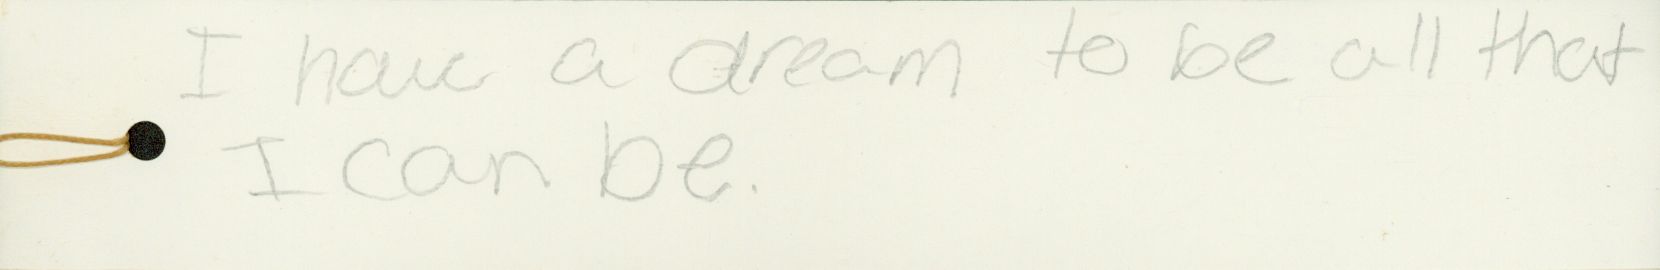 I have a dream to be all that
I can be.